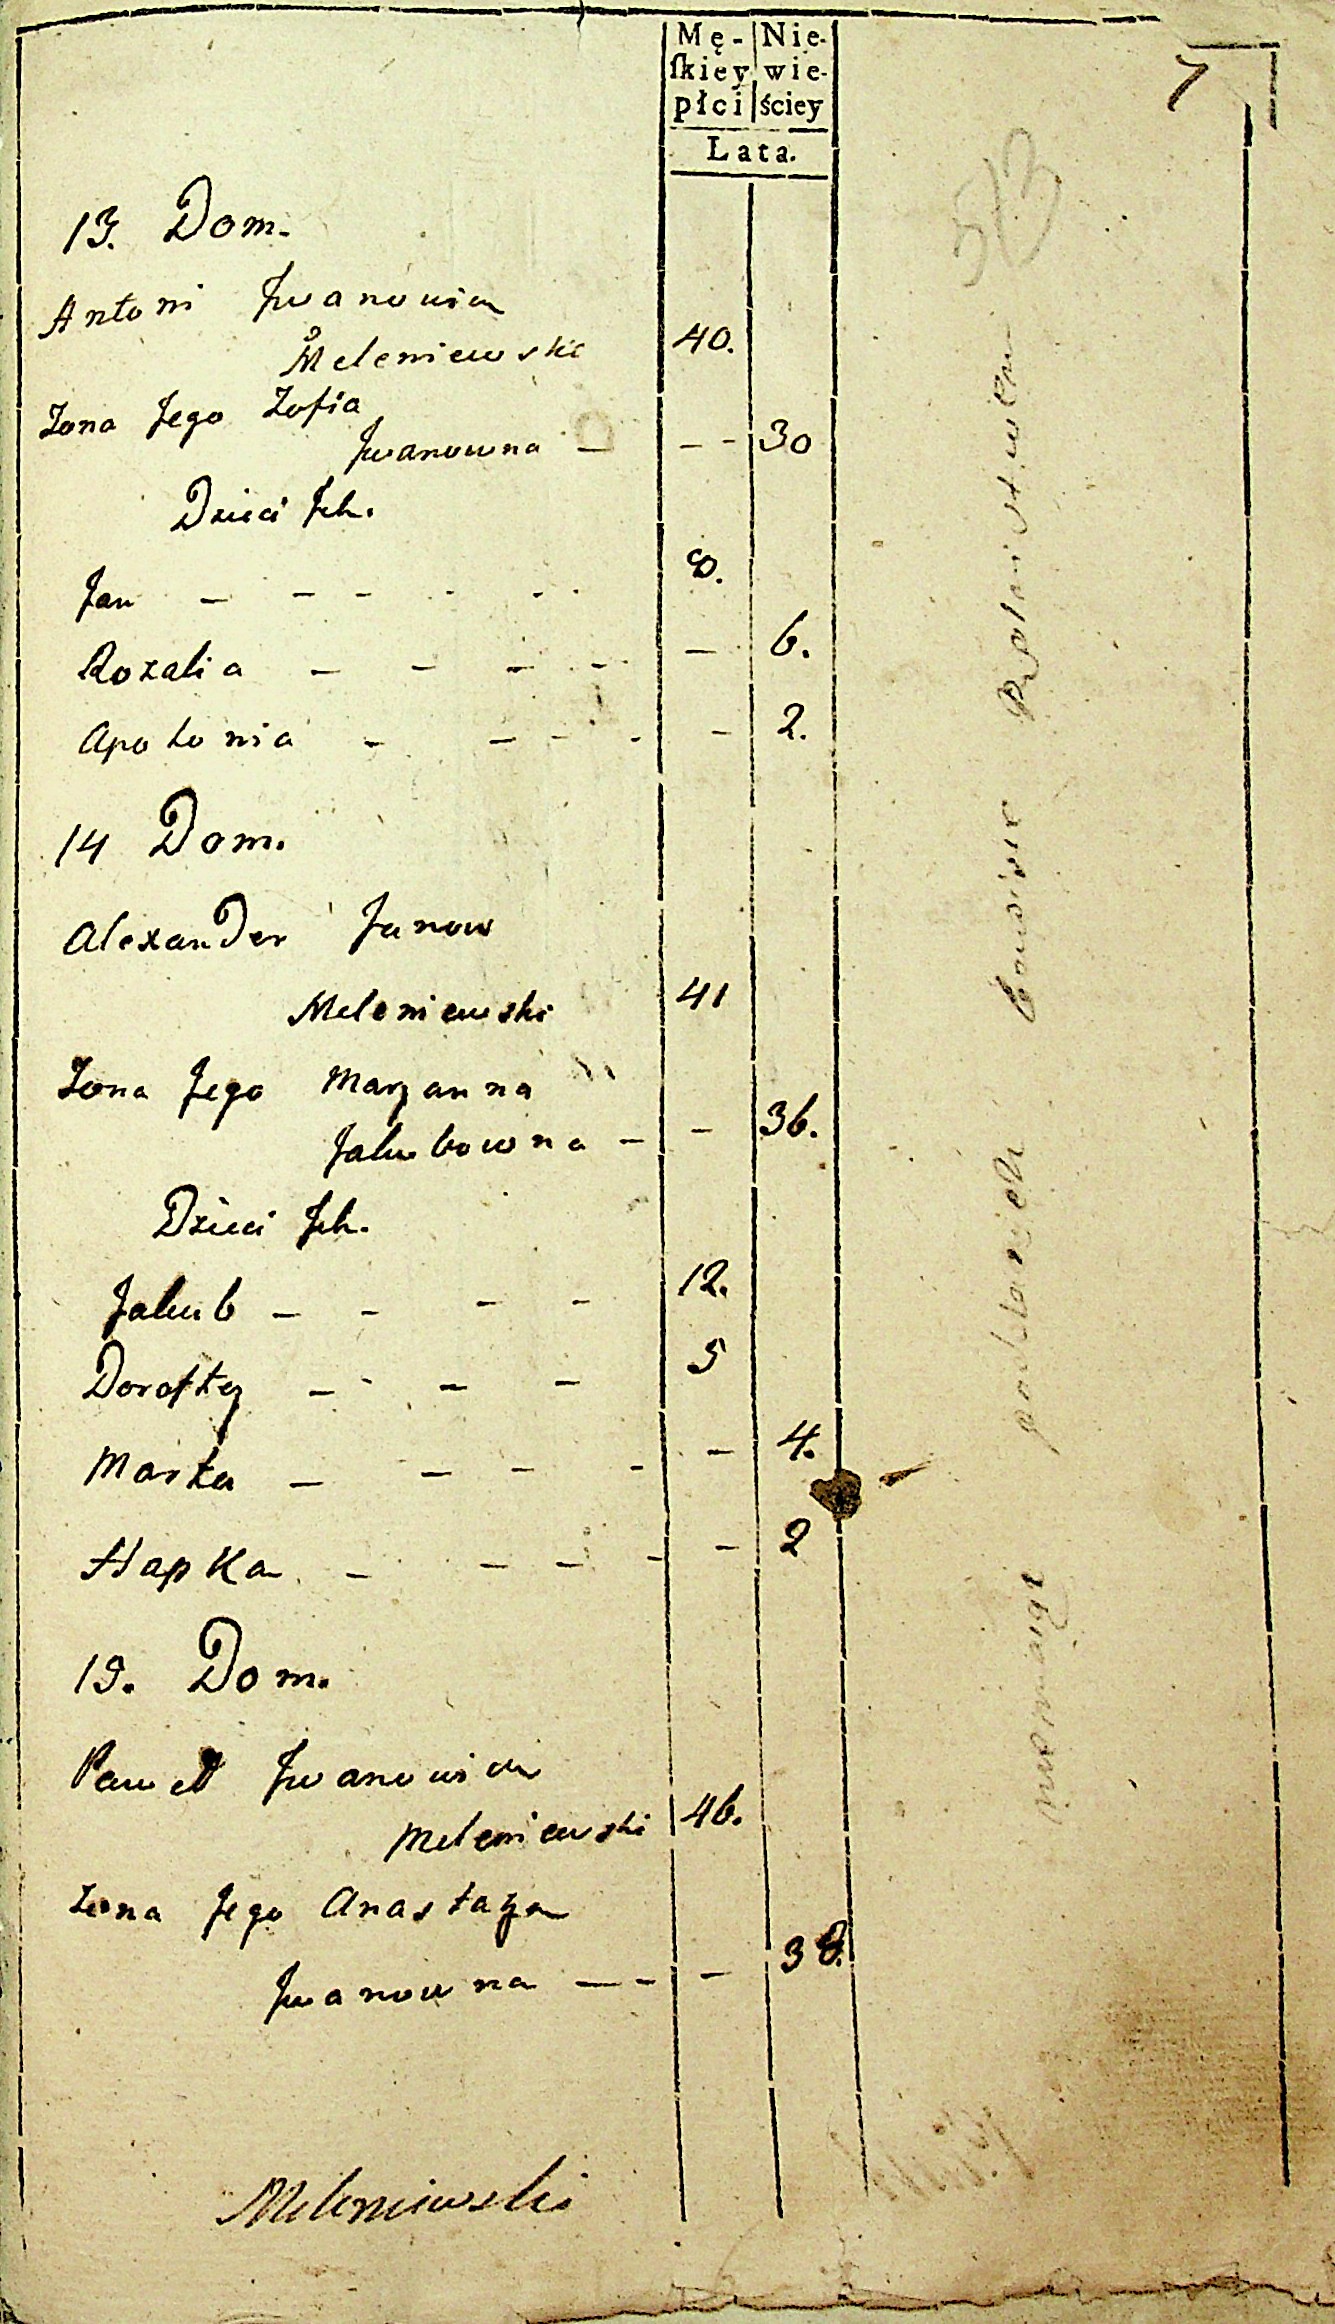 Mę- Nie-
ſkiey wie-
płci ściey
Lata.
7
513
13. Dom.
Antoni Jwanowicz
Meleniewski 40.
Zona Jego Zofia
Jwanowna – – – 30
Dzieci Jch.
Jan – – – – – – 8.
Rozalia – – – – – 6.
Apolonia – – – – – 2.
14 Dom.
Alexander Janow
Meleniewski 41
Zona Jego Maryanna
Jakubowna – – 36.
Dzieci Jch.
Jakub – – – – 12.
Doroftey – – – – 5
Marta – – – – – 4.
Hapka – – – – – 2
15. Dom.
Paweł Jwanowicz
Meleniewski 46.
Zona Jego Anastazya
Jwanowna – – – 38.
Meleniewski